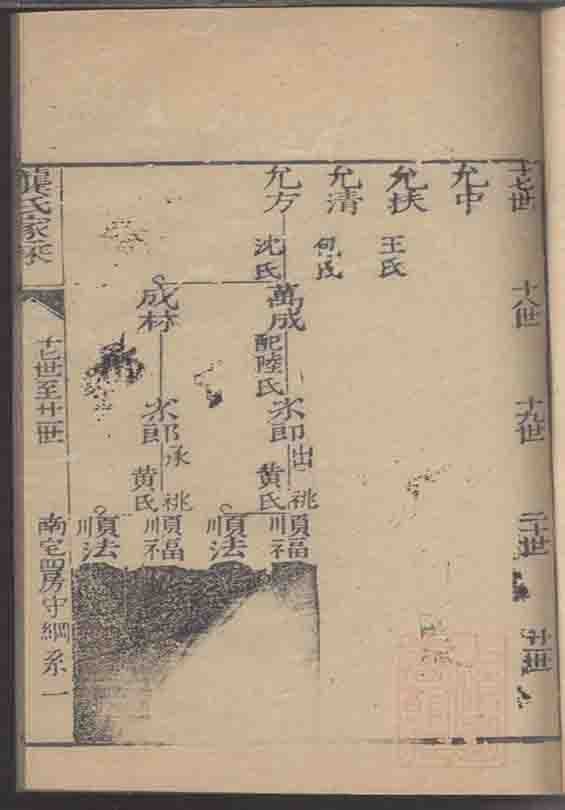 十七世
十八世
十九世
二十世
廿一世
允中
允扶
王氏
允清
何氏
允方
沈氏
萬成
配陸氏
水郎
出祧
黄氏
順福
順法
成林
水郎
承祧
黄氏
順福
順法
龔氏家乘
十七世至廿一世
南宅四房守綱系一